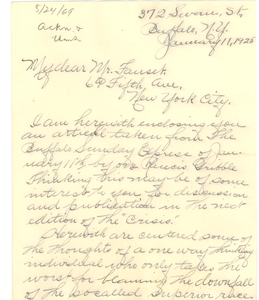 5/24/69
Ackn &
372 Swan, St.
Buffalo, N.Y.
January 11, 1925
My dear Mr. Fauset
69 Fifth, Ave.
New York City.
I am herewith enclosing you
an article taken from The
Buffalo Sunday Express of Jan-
uary 11th by one
thinking this may be of some
interest to you for discussion
and publication in the next
edition of the "Crisis".
Herewith are centered some of
the thoughts of a one way thinking
individual who only takes the
worst for blaming the downfall
of the socalled superior race